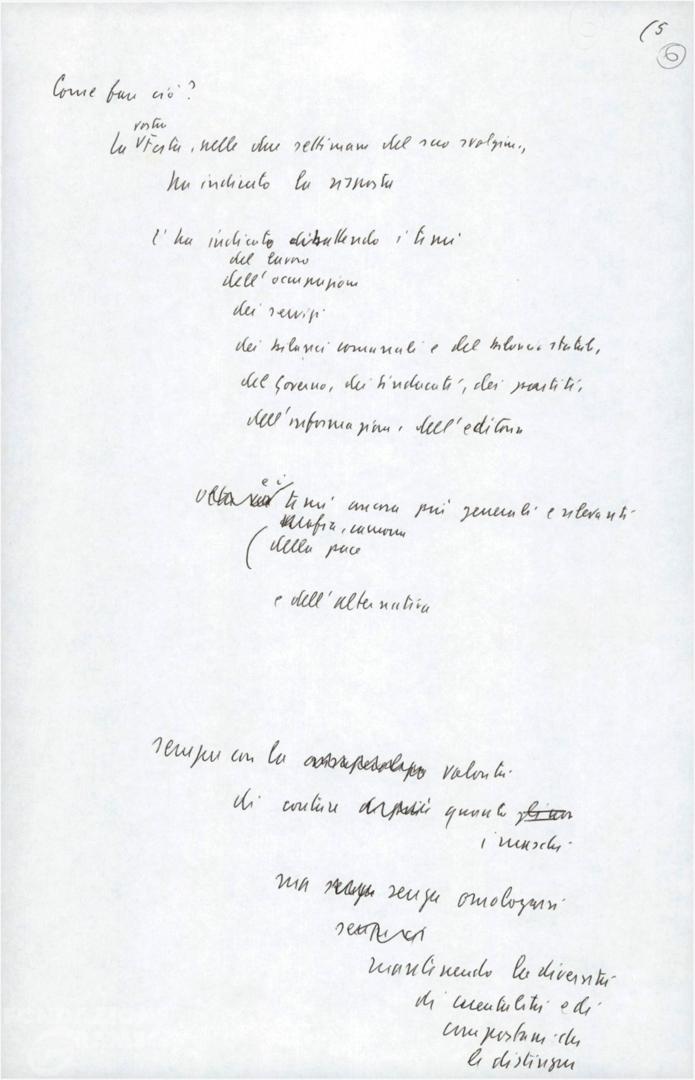 (5
6
Come fare ciò?
vostra
La Festa, nelle due settimane del suo svolgim.,
ha indicato la risposta
l'ha indicato dibattendo i temi
del lavoro
dell'occupazione
dei servizi
dei bilanci comunali e del bilancio statale,
del Governo, dei sindacati, dei partiti,
dell'informazione, dell'editoria
e i
temi ancora più generali e rilevanti
Mafia, camorra
(della pace
e dell'alternativa
sempre con la volontà
di contare quanto
i maschi
ma senza omologarsi
mantenendo la diversità
di mentalità e di
comportam. che
le distingue